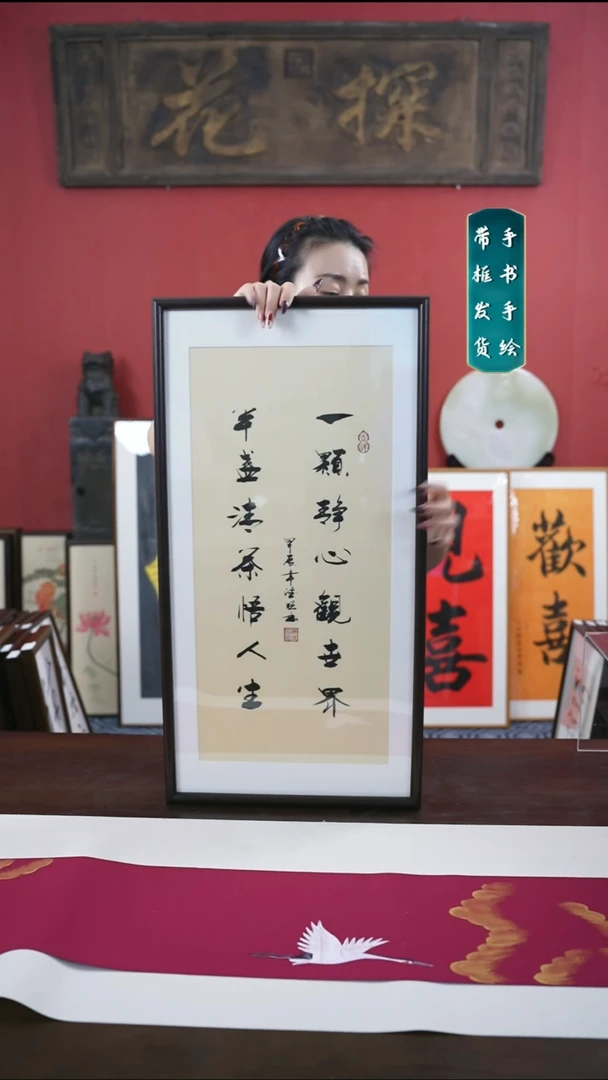 探花
手书手绘
带框发货
一颗静心观世界
半盏清茶悟人生
見喜
歡喜